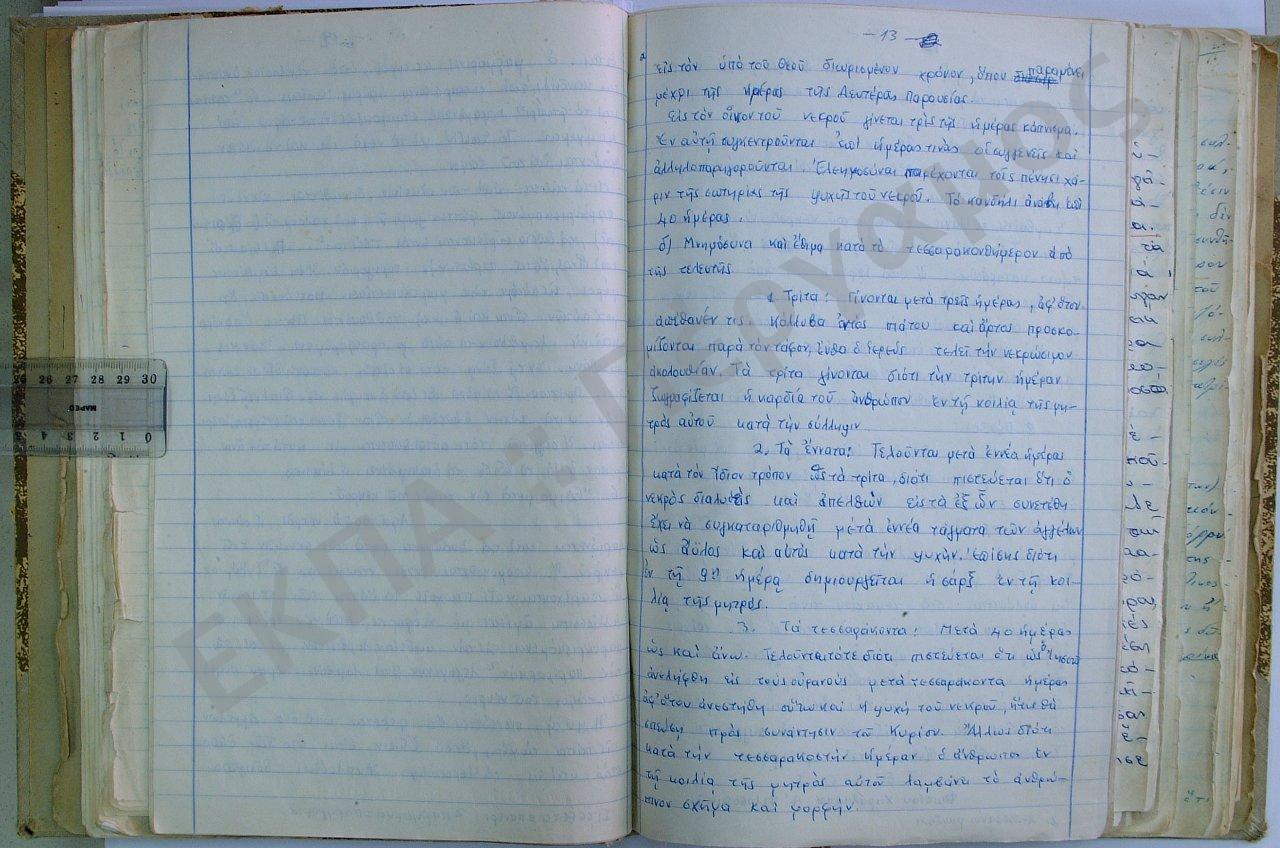 - 13 -
εἰς τὸν ὑπὸ τοῦ Θεοῦ διωρισμένον χρόνον, ὅπου παραμένει
μέχρι τῆς ἡμέρας τῆς Δευτέρας Παρουσίας.
Εἰς τὸν οἶκον τοῦ νεκροῦ γίνεται τρὶς τῆς ἡμέρας κάπνισμα.
Ἐν αὐτῇ συγκεντροῦνται ἐπὶ ἡμέρας τινὰς οἱ συγγενεῖς καὶ
ἀλληλοπαρηγοροῦνται. Ἐλεημοσύναι παρέχονται τοῖς πένησι χά-
ριν τῆς σωτηρίας τῆς ψυχῆς τοῦ νεκροῦ. Τὸ κανδήλι ἀνάβει ἐπὶ
40 ἡμέρας.
δ) Μνημόσυνα καὶ ἔθιμα κατὰ τὸ τεσσαρακονθήμερον ἀπὸ
τῆς τελευτῆς
1. Τρίτα: Γίνονται μετὰ τρεῖς ἡμέρας, ἀφ' ὅτου
ἀπέθανέν τις. Κόλλυβα ἐντὸς πιάτου καὶ ἄρτος προσκο-
μίζονται παρὰ τὸν τάφον, ἔνθα ὁ ἱερεὺς τελεῖ τὴν νεκρώσιμον
ἀκολουθίαν. Τὰ τρίτα γίνονται διότι τὴν τρίτην ἡμέραν
ζωγραφίζεται ἡ καρδία τοῦ ἀνθρώπου ἐν τῇ κοιλίᾳ τῆς μη-
τρὸς αὐτοῦ κατὰ τὴν σύλληψιν.
2. Τὰ ἔννατα: Τελοῦνται μετὰ ἐννέα ἡμέρας
κατὰ τὸν ἴδιον τρόπον ὡς τὰ τρίτα, διότι πιστεύεται ὅτι ὁ
νεκρὸς διαλυθεὶς καὶ ἀπελθὼν εἰς τὰ ἐξ ὧν συνετέθη
ἔχει νὰ συγκαταριθμηθῇ μετὰ ἐννέα τάγματα τῶν ἀγγέλων
ὡς ἄϋλος καὶ αὐτὸς κατὰ τὴν ψυχήν. Ἐπίσης διότι
ἐν τῇ 9ῃ ἡμέρᾳ δημιουργεῖται ἡ σὰρξ ἐν τῇ κοι-
λίᾳ τῆς μητρός.
3. Τὰ τεσσαράκοντα: Μετὰ 40 ἡμέρας
ὡς καὶ ἄνω. Τελοῦνται τότε διότι πιστεύεται ὅτι ὡς ὁ Ἰησοῦς
ἀνελήφθη εἰς τοὺς οὐρανοὺς μετὰ τεσσαράκοντα ἡμέρας
ἀφ' ὅτου ἀνεστήθη οὕτω καὶ ἡ ψυχὴ τοῦ νεκροῦ, ἥτις θὰ
σπεύσῃ πρὸς συνάντησιν τοῦ Κυρίου. Ἄλλως διότι
κατὰ τὴν τεσσαρακοστὴν ἡμέραν ὁ ἄνθρωπος ἐν
τῇ κοιλίᾳ τῆς μητρὸς αὐτοῦ λαμβάνει τὸ ἀνθρώ-
πινον σχῆμα καὶ μορφήν.
ΕΚΠΑ
30 29 28 27 26 25
0 1 2 3 4 5